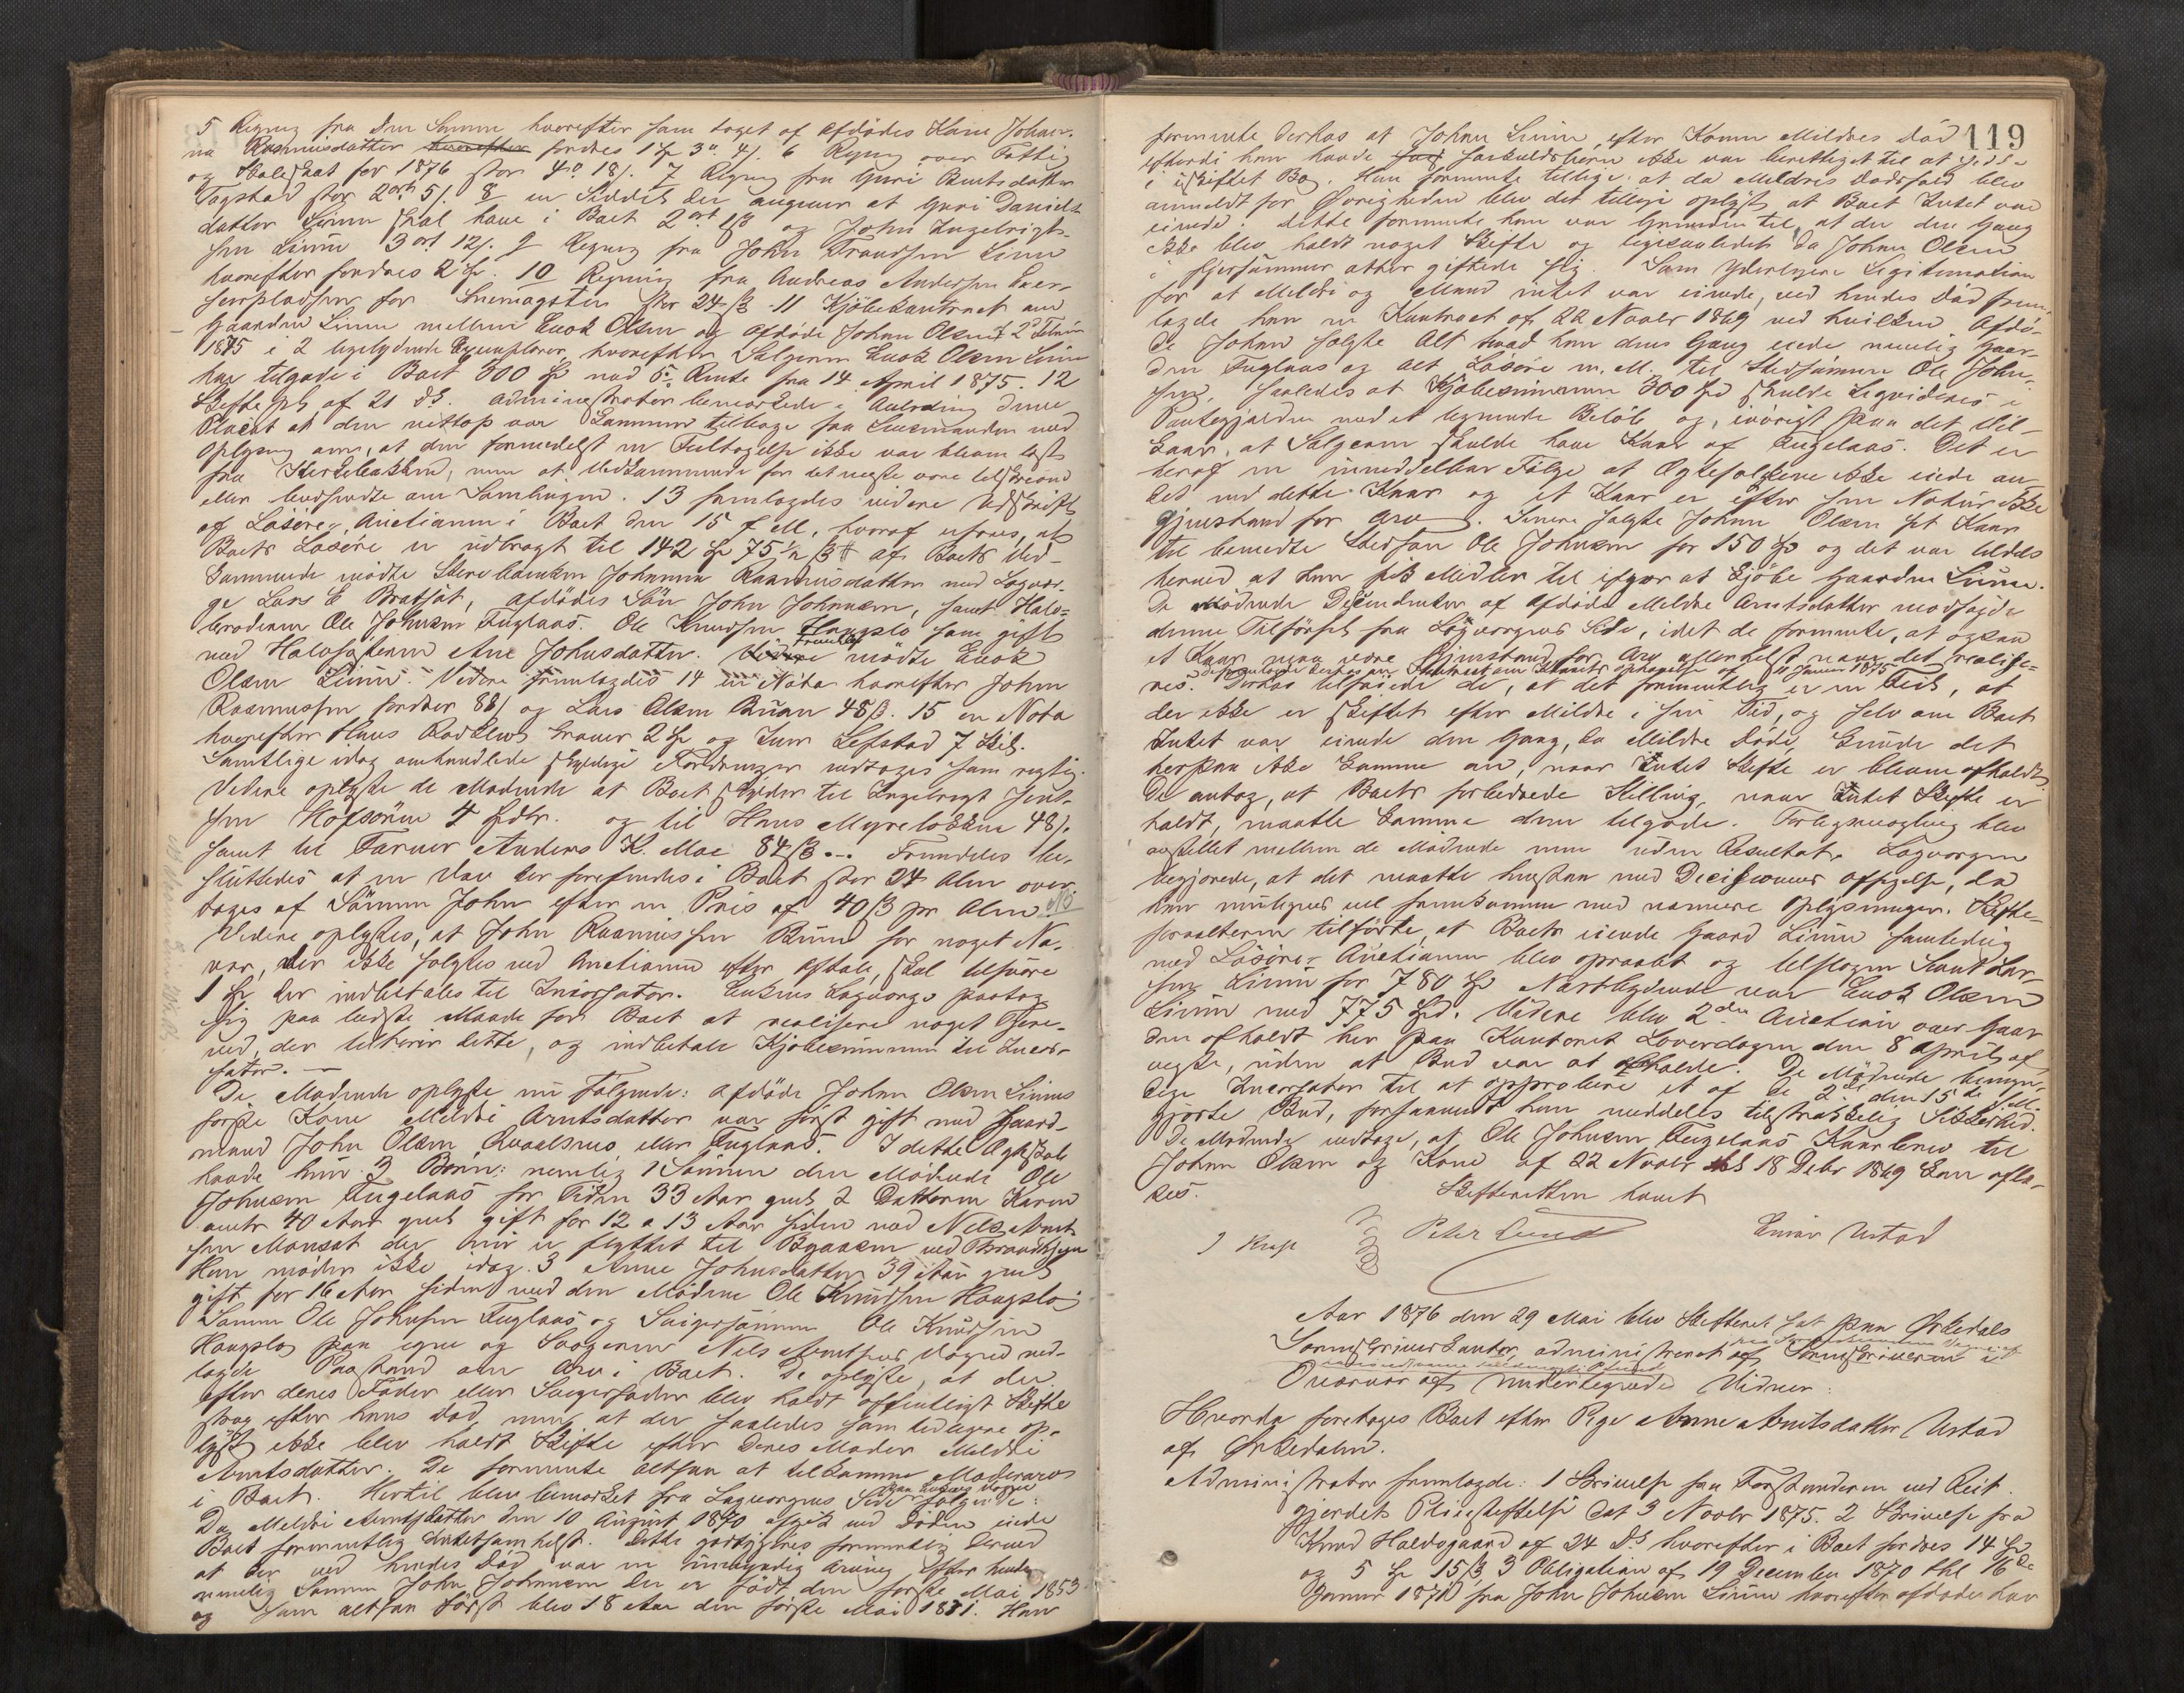 5 Regning fra den Samme hvorefter som taget af Afdødes Kone Johan-
na Rasmusdatter hvorefter fordres 1 Sp 3 ort 4 s. 6 Regning over Fattig
og Skoleskat for 1876 stor 4 ort 18 s. 7 Regning fra Guri Berntsdatter
Togstad stor 2 ort 5 s. 8 en Seddel der angiver at Guri Daniels-
datter Linum skal have i Boet 2 ort og John Ingebrigt-
sen Linum 3 ort 12 s. 9 Regning fra John Trondsen Linum
hvorefter fordres 2 Sp. 10 Regning fra Andreas Andersen Exer-
serpladsen for Snemagsten stor 24 ß. 11 Kjøbekontract om
Gaarden Linum mellem Enok Olsen og Afdøde John Olsen af 2 Februar
1875 i 2 ligelydende Exemplarer, hvorefter Sælgeren Enok Olsen Linum
har tilgode i Boet 300 Sp med 5% Rente fra 14 April 1875. 12
Skiftepl. af 21 ds. Administrator bemærkede i Anledning denne
Placat at den nettop var kommen tilbage fra Lensmanden med
Oplysning om, at den formedelst en Feiltagelse ikke var bleven læst
fra Kirkebakken, men at Vedkommende for det meste vare tilskrevne
eller budsendte om Samlingen. 13 fremlagdes videre Udskrift
af Løsøre-Auctionen i Boet den 15 f. M., hvoraf erfares, at
Boets Løsøre er udbragt til 142 Sp 75 1/2 ß. Af Boets Ved-
kommende mødte Enken Johanna Rasmusdatter med Lagvær-
ge Lars E Bratset, Afdødes Søn John Johnsen, samt Halv-
broderen Ole Johnsen Fuglaas. Ole Knudsen Haugslo som gift
med Halvsøsteren Ane Johnsdatter. Videre Fremdeles mødte Enok
Olsen Linum. Videre fremlagdes 14 en Nota hvorefter John
Rasmussen fordrer 88 s og Lars Olsen Buan 48 ß. 15 en Nota
hvorefter Hans Rødklev kræver 2 Sp og Iver Lefstad 7 Skil.
Samtlige idag omhandlede skyldige Fordringer vedtoges som rigtig.
Videre oplyste de Mødende at Boet skylder til Ingebrigt Jent-
sen Hofsøren 4 Spdlr. og til Hans Myrelokken 48 s.
samt til Farver Anders K. Moe 84 ß. Fremdeles be-
sluttedes at en Væv der forefindes i Boet stor 24 Alen over-
tages af Sønnen John efter en Priis af 40 ß pr Alen.
Videre oplystes, at John Rasmussen Buan for noget Na-
ver, der ikke solgtes ved Auctionen efter Aftale, skal tilsvare
1 Sp der indbetales til Incassator. Enkens Lagværge paatog
sig paa bedste Maade for Boet at realisere noget Fjære-
ved, der tilhører dette, og indbetale Kjøbesummen til Incas-
sator. —
De Mødende oplyste nu Følgende: Afdøde John Olsen Linums
første Kone Meldri Arntsdatter var først gift med Gaard-
mand John Olsen Kvaalsnes eller Fuglaas. I dette Ægteskab
havde hun 3 Børn: nemlig 1 Sønnen den Mødende Ole
Johnsen Fugelaas for Tiden 33 Aar gml. 2 Datteren Karen
omtr 40 Aar gml gift for 12 a 13 Aar siden med Nils Arnt-
sen Monset der nu er flyttet til Byaasen ved Throndhjem
Han møder ikke idag. 3 Anne Johnsdatter 39 Aar gml
gift for 16 Aar siden med den Mødende Ole Knudsen Haugslo
Sønnen Ole Johnsen Fuglaas og Svigersønnen Ole Knudsen
Haugslo paa egne og Svogeren Nils Arntsens Vegne ned-
lagde Paastand om Arv i Boet. De oplyste, at der
efter deres Fader eller Svigerfader blev holdt offentligt Skifte
strax efter hans Død, men at der saaledes som tidligere op-
lyst ikke blev holdt Skifte efter deres Moder Meldri
Arntsdatter. De formente altsaa at tilkomme Mødrearv
i Boet. Hertil blev bemærket fra Lagværgens Side paa Enkens Vegne Følgende:
Da Meldri Arntsdatter den 10 August 1870 afgik ved Døden eiede
Boet formentlig Intetsomhelst. Dette godtgjøres formentlig derved
at der ved hendes Død var en umyndig Arving efter hende
nemlig Sønnen John Johnsen der er født den første Mai 1853
og som altsaa først blev 18 Aar den første Mai 1871. Han
119
formente derhos at John Linum efter Konen Meldris Død
efterdi han havde Særkuldsbørn ikke var berettiget til at sidde
i uskiftet Bo. Han formente tillige at da Meldris Dødsfald blev
anmeldt for Øvrigheden blev det tillige oplyst at Boet Intet var
eiende. Dette formente han var Grunden til, at der den Gang
ikke blev holdt noget Skifte og ligesaaledes da John Olsen
i Fjersommer atter giftede sig. Som yderligere Legitimation
for at Meldri og Mand intet var eiende, ved hendes Død frem-
lagde han en Kontract af 22 Novbr 1869 ved hvilken Afdø-
de John solgte Alt hvad han den Gang eiede nemlig Gaar-
den Fuglaas og alt Løsøre m. M. til Stedsønnen Ole John-
sen, saaledes at Kjøbesummen 300 Spd skulde liqvideres i
Pantegjælden med et lignende Beløb og, iøvrigt paa det Vil-
kaar, at Sælgeren skulde have Kaar af Fugelaas. Det er
heraf en umiddelbar Følge at Ægtefolkene ikke eiede an-
det end dette Kaar og et Kaar er efter sin Natur ikke
Gjenstand for Arv. Senere solgte John Olsen sit Kaar
til bemeldte Stedsøn Ole Johnsen for 150 Sp og det var tildels
herved at han fik Midler til ifjor at kjøbe Gaarden Linum.
De mødende Descendenter af Afdøde Meldri Arntsdatter modsagde
denne Tilførsel fra Lagværgens Side, idet de formente, at ogsaa
et Kaar maa være Gjenstand for Arv allerhelst naar det realise-
res. De fremlagde derhos en Kontract om Kaarets Ophævelse af Januar 1875 Derhos tilføiede de, at det formentlig er en Feil, at
der ikke er skiftet efter Meldri i sin Tid, og selv om Boet
Intet var eiende den Gang, da Meldri døde, kunde det
herpaa ikke komme an, naar Intet Skifte er bleven afholdt.
De antog, at Boets forbedrede Stilling, naar Intet Skifte er
holdt, maatte komme dem tilgode. Forligsmægling blev
anstillet mellem de Mødende men uden Resultat. Lagværgen
begjærede, at det maatte henstaa med Decisionens Afsigelse, da
han muligens vil fremkomme med nærmere Oplysninger. Skifte-
forvalteren tilførte, at Boets eiende Gaard Linum samtidig
med Løsøre-Auctionen blev opraabt og tilslagen Knut Lar-
sen Linum for 780 Sp. Næstbydende var Enok Olsen
Linum med 775 Spd. Videre blev 2den Auction over Gaar-
den afholdt her paa Kontoret Løverdagen den 8 April af
vigte, uden at Bud var at erholde. De Mødende bemyn-
dige Incassator til at approbere et af de 2de den 15de f. M.
gjorte Bud, forsaavidt han meddeles tilstrækkelig Sikkerhed.
De Mødende vedtoge, at Ole Johnsen Fuglaas Kaarbrev til
John Olsen og Kone af 22 Novbr thl 18 Debr 1869 kan afly-
ses.
Skifteretten hævet
J Krag
Peter Lund
Einar Ustad
Aar 1876 den 29 Mai blev Skifteret sat paa Orkedals
Sorenskriverkontor, administreret af Sorenskriveren i
Overvær af undertegnede Vidner:
Hvorda foretoges Boet efter Pige Anne Arntsdatter Ustad
af Orkedalen.
Administrator fremlagde: 1 Skrivelse fra Forstanderen ved Reit-
gjerdets Pleiestiftelse dat 3 Novbr 1875. 2 Skrivelse fra
Knud Haldogaard af 24 ds hvorefter i Boet fordres 14 Sp
og 5 Sp 15 ß, 3 Obligation af 19 December 1870 thl 16de
Januar 1871 fra John Johnsen Linum hvorefter afdøde har